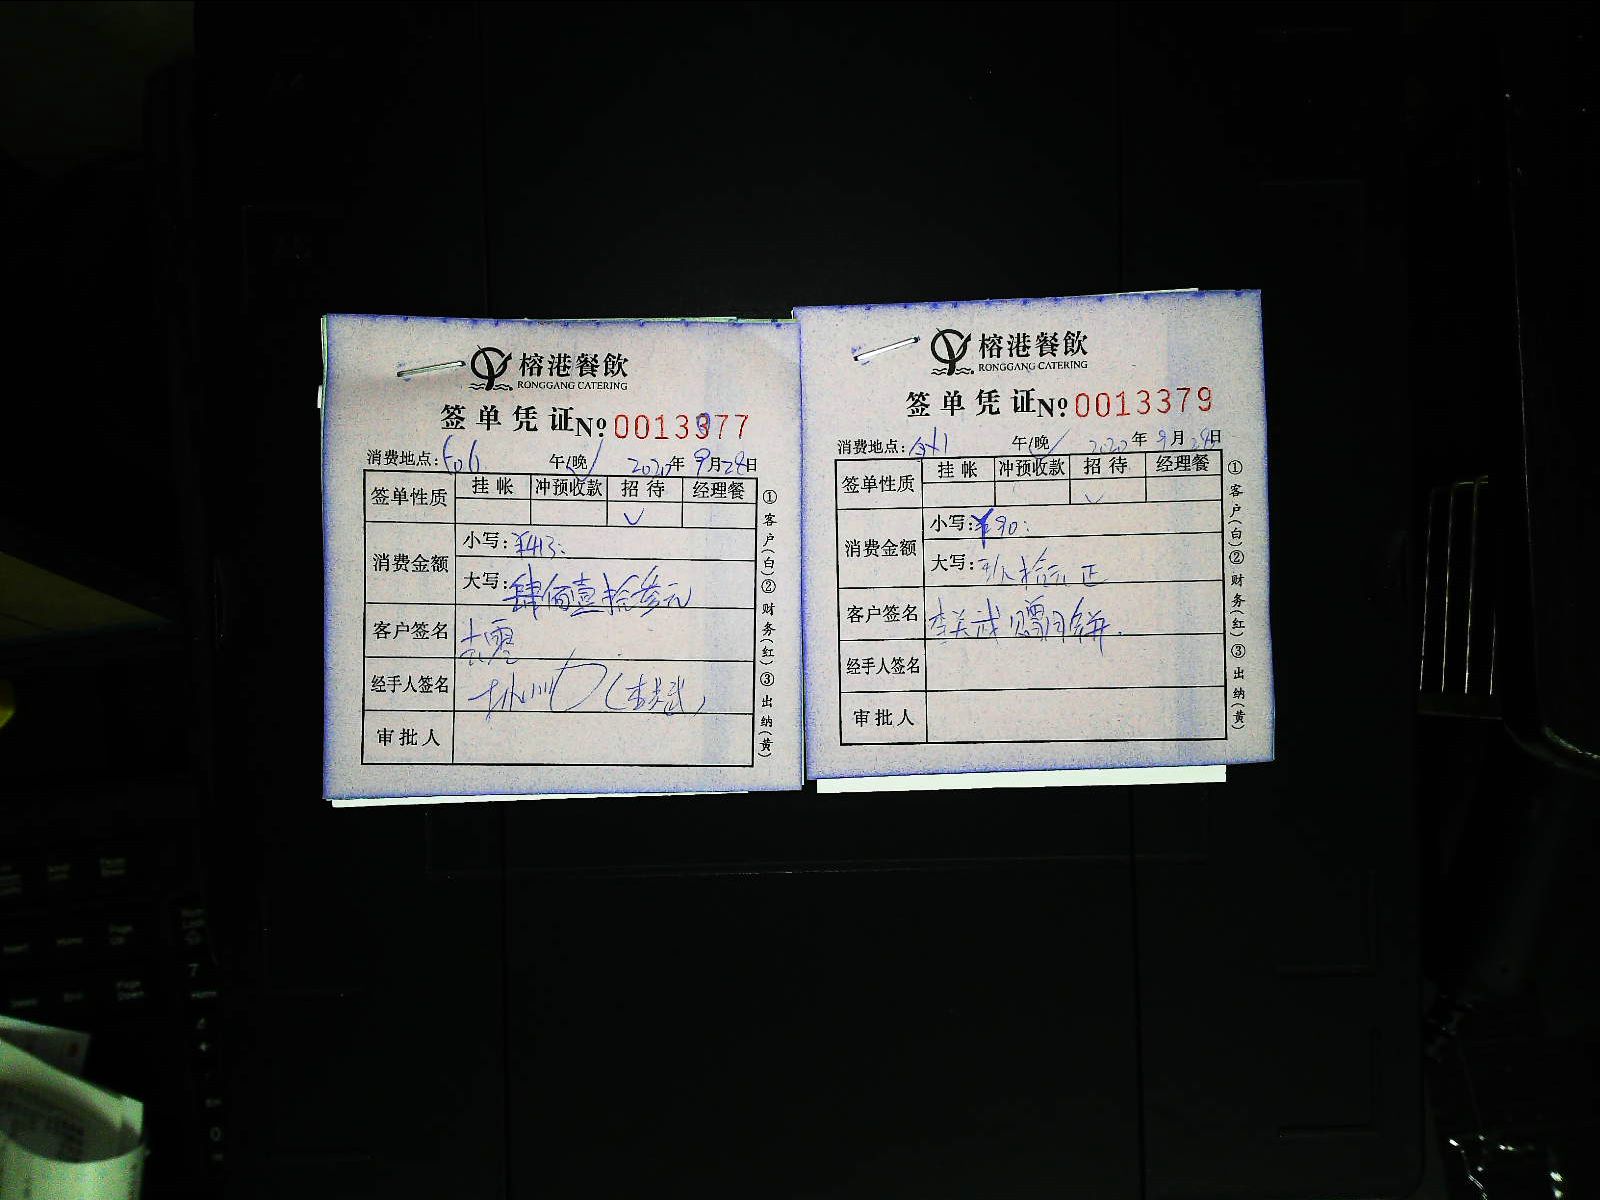 榕港餐飲
RONGGANG CATERING
签单凭证 № 0013377
消费地点: 606 午/晚 2020年9月28日
签单性质 挂帐 冲预收款 招待 经理餐
✓
消费金额 小写: ¥413:
大写: 肆佰壹拾叁元
客户签名
经手人签名
审批人
①客户(白)②财务(红)③出纳(黄)
榕港餐飲
RONGGANG CATERING
签单凭证 № 0013379
消费地点: 午/晚 2020年9月28日
签单性质 挂帐 冲预收款 招待 经理餐
✓
消费金额 小写: ¥90:
大写: 玖拾元正
客户签名 月饼
经手人签名
审批人
①客户(白)②财务(红)③出纳(黄)